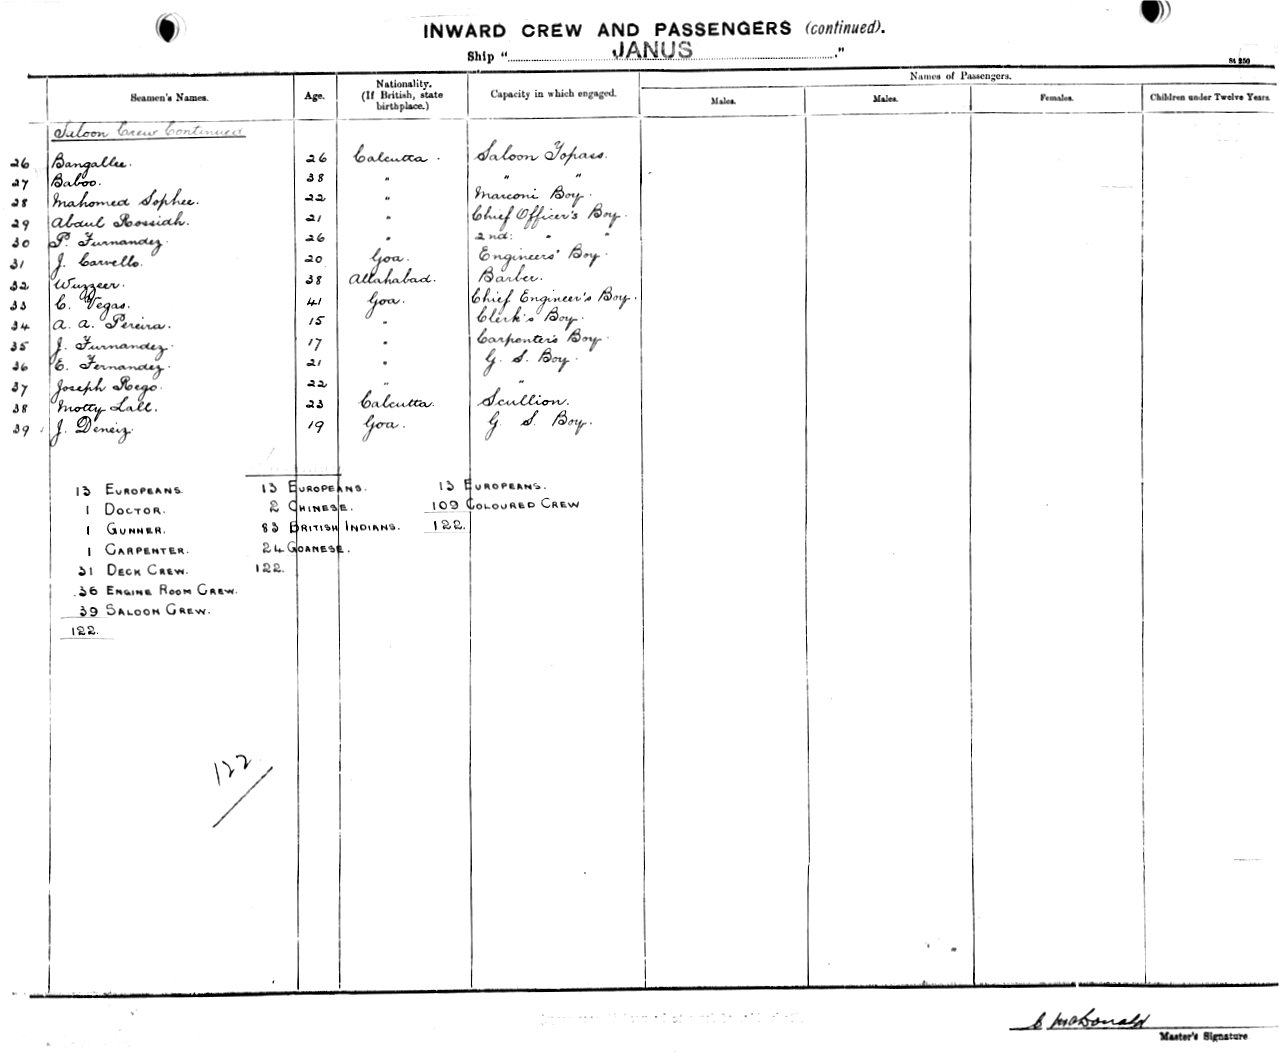 INWARD CREW AND PASSENGERS (continued).
Ship " JANUS ."
Seamen's Names. Age. Nationality. (If British, state birthplace.) Capacity in which engaged. Names of Passengers.
Males. Males. Females. Children under Twelve Years.
Saloon Crew Continued
26 Bangallee. 26 Calcutta. Saloon Topass.
27 Baboo. 38 " " "
28 Mahomed Sophee. 22 " Marconi Boy.
29 Abdul Rossiah. 21 " Chief Officer's Boy.
30 P. Furnandez. 26 " 2nd: " "
31 J. Carvello. 20 Goa. Engineers' Boy.
32 Wuzzeer. 38 Allahabad. Barber.
33 C. Vegas. 41 Goa. Chief Engineer's Boy.
34 A. A. Pereira. 15 " Clerk's Boy.
35 J. Furnandez. 17 " Carpenter's Boy.
36 E. Fernandez. 21 " G. S. Boy.
37 Joseph Rego. 22 " "
38 Motty Lall. 23 Calcutta. Scullion.
39 J. Deneiz. 19 Goa. G. S. Boy.
13 EUROPEANS. 13 EUROPEANS. 13 EUROPEANS.
1 DOCTOR. 2 CHINESE. 109 COLOURED CREW
1 GUNNER. 83 BRITISH INDIANS. 122.
1 CARPENTER. 24 GOANESE.
31 DECK CREW. 122.
36 ENGINE ROOM CREW.
39 SALOON CREW.
122.
122
C McDonald
Master's Signature